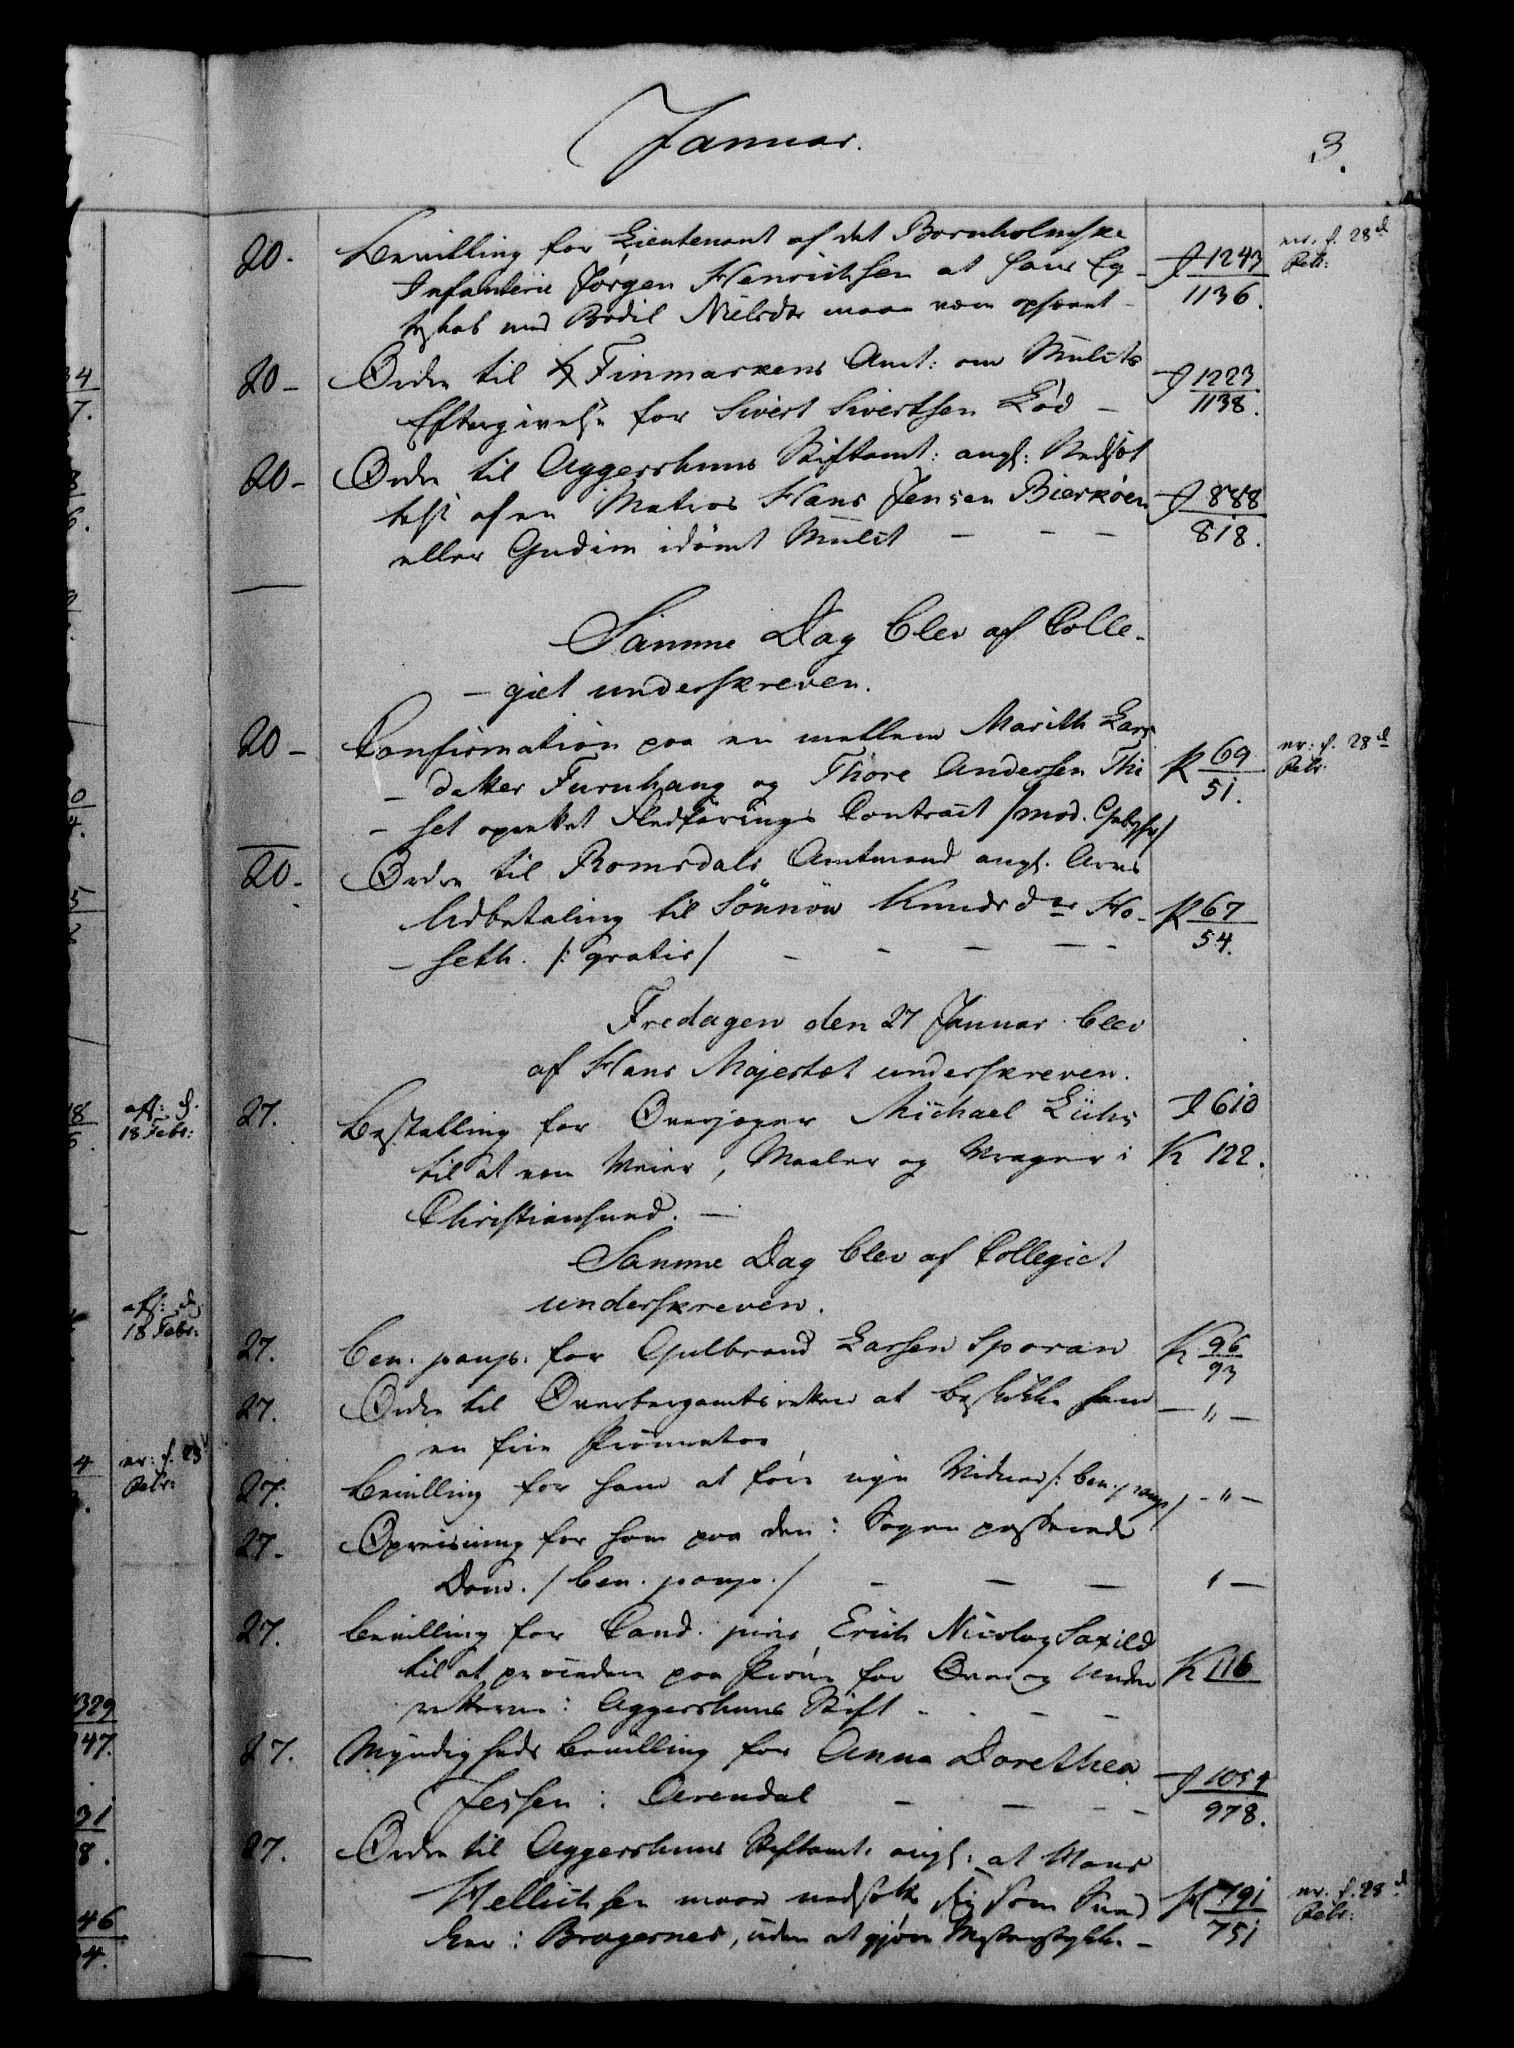 Januar.
3.
20. Bevilling for Lieutenant af det Bornholmske
Infanterie Jørgen Henrichsen at hans Eg-
teskab med Bodil Nielsdr maa være ophævet -
I 1243
1136.
nr. f. 28d
Febr:
20- Ordre til Finmarkens Amt: om Mulcts
Eftergivelse for Sivert Sivertsen Lød -
I 1223
1138.
20- Ordre til Aggershuus Stiftamt: angl: Nedsæt
telse af en Matros Hans Jensen Bierkøen
eller Gudim idømt Mulct - - -
I 888
818.
Samme Dag blev af Colle-
- giet underskreven.
20- Confirmation paa en mellem Marith Lars
- datter Furuhaug og Thore Andersen Thi
- set oprettet Fledførings Contract /mod. Gebyhr/
K 69
51.
nr: f. 28d
Febr:
20- Ordre til Romsdals Amtmand angl. Arvs
Udbetaling til Sønnøv Knudsdr Ho-
- seth. /: gratis/ - - - - -
K 67
54.
Fredagen den 27 Januar blev
af Hans Majestæt underskreven.
27. Bestalling for Overjæger Michael Lühr
til at være Veier, Maaler og Vrager i
Christiansund. -
I 610
K 122.
Samme Dag blev af Collegiet
underskreven.
27. Ben. paup. for Gulbrand Larsen Sporan
K 96
93
27. Ordre til Overbergamtsretten at beskikke ham
en frie Procurator
- " -
27. Bevilling for ham at føre nye Vidner /: ben. paup/ - " -
27- Opreisning for ham paa den i Sagen passerede
Dom. / ben. paup. / - - - " -
27. Bevilling for Cand. juris Erich Nicolay Saxild
til at procedere paa Prøve for Over og Under
retterne i Aggershuus Stift - - - -
K 116
27. Myndigheds Bevilling for Anna Dorethea
Jessen i Arendal - - - -
I 1054
978.
27. Ordre til Aggershuus Stiftamt. angl: at Mons
Hellichsen maae nedsætte sig som Sned
ker i Bragernes, uden at gjøre Mesterstykke -
K 791
751
nr. f. 28d
Febr:
aff: d.
18 Febr:
aff: d.
18 Febr:
nr: f. 23
Febr:
34
7.
329
47.
31
8.
46
4.